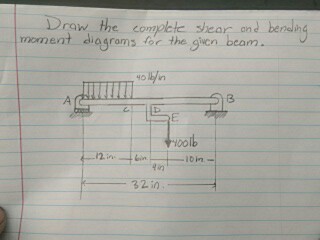 Draw the complete shear and bending
moment diagrams for the given beam.
40 lb/in
A
B
C
D
E
400lb
12 in
6in
4in
10in
32 in.